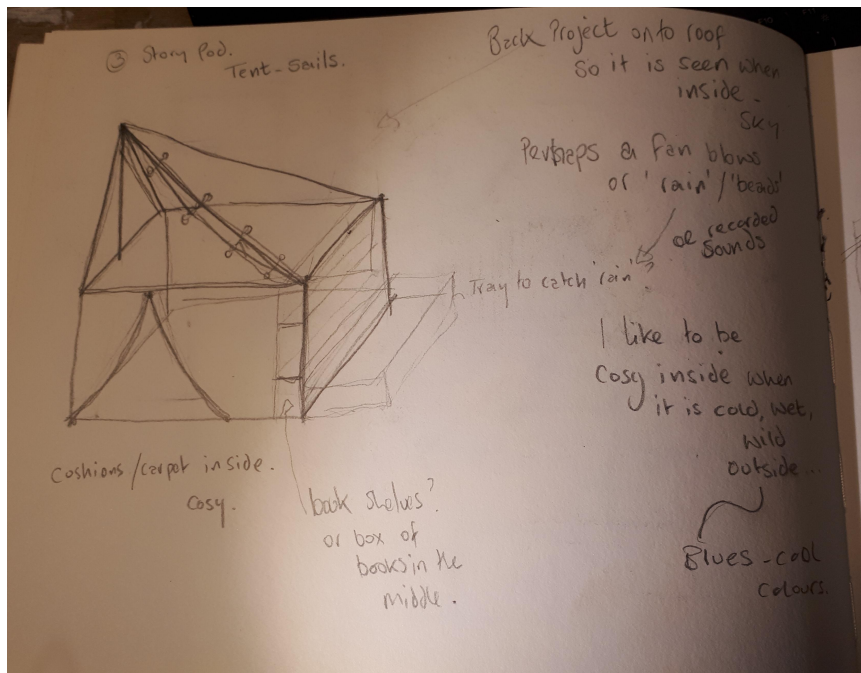 ③ Story Pod.
Tent-Sails.
Back Project onto roof
So it is seen when
inside.
Sky
Perhaps a fan blows
or 'rain'/'beads'
or recorded
sounds
Tray to catch 'rain'?
I like to be
Cosy inside when
it is cold, wet,
wild
outside...
Blues-cool
colours.
Cushions/carpet inside.
Cosy.
book shelves?
or box of
books in the
middle.